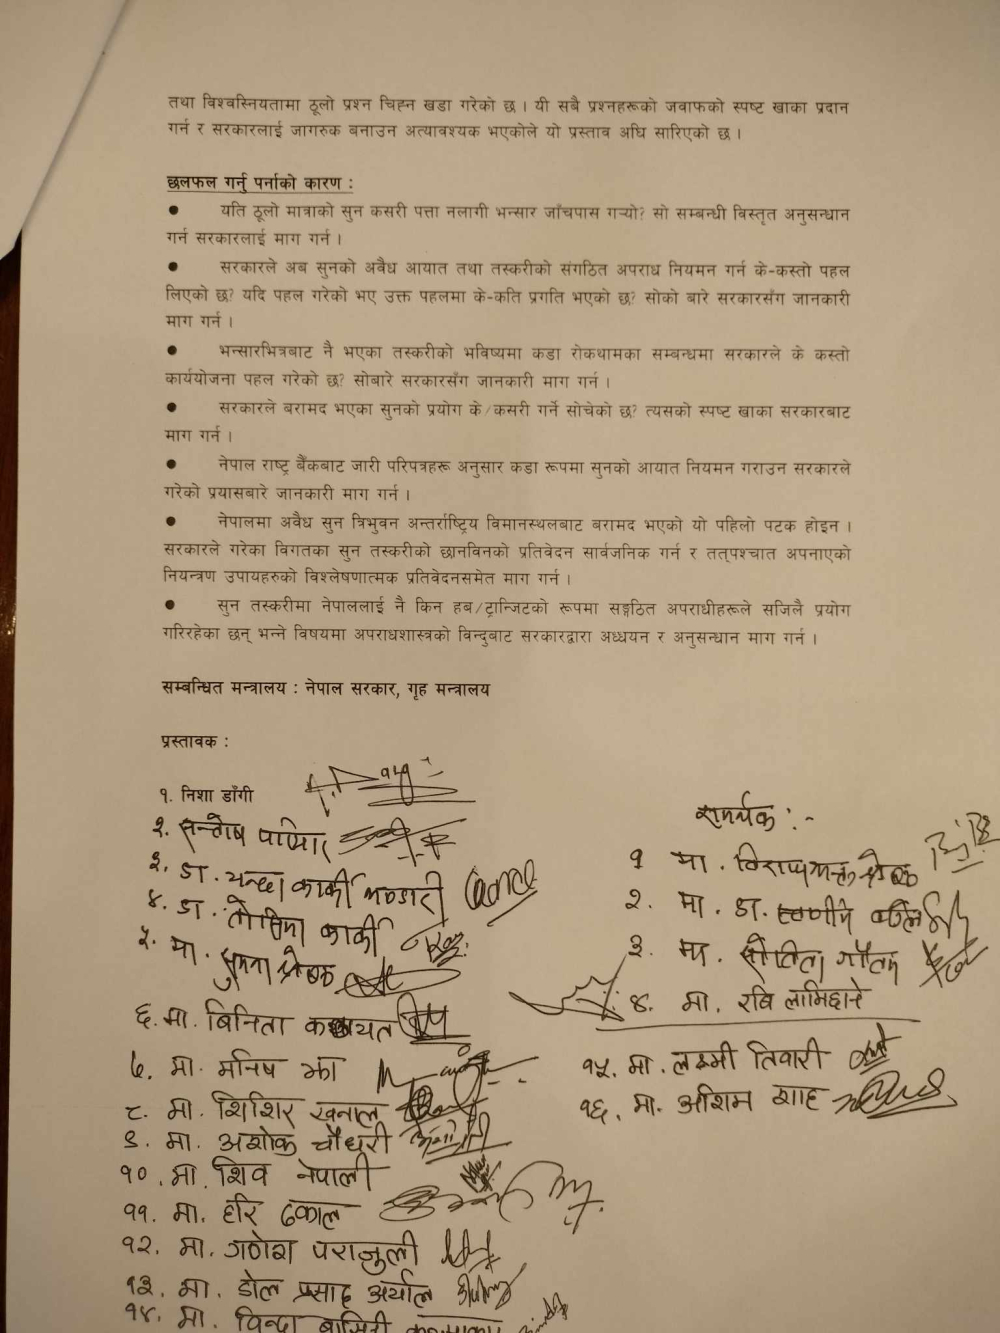 तथा विश्वस्नियतामा ठूलो प्रश्न चिह्न खडा गरेको छ । यी सबै प्रश्नहरूको जवाफको स्पष्ट खाका प्रदान
गर्न र सरकारलाई जागरुक बनाउन अत्यावश्यक भएकोले यो प्रस्ताव अघि सारिएको छ ।
छलफल गर्नु पर्नाको कारण :
● यति ठूलो मात्राको सुन कसरी पत्ता नलागी भन्सार जाँचपास गऱ्यो? सो सम्बन्धी विस्तृत अनुसन्धान
गर्न सरकारलाई माग गर्न ।
● सरकारले अब सुनको अवैध आयात तथा तस्करीको संगठित अपराध नियमन गर्न के-कस्तो पहल
लिएको छ? यदि पहल गरेको भए उक्त पहलमा के-कति प्रगति भएको छ? सोको बारे सरकारसँग जानकारी
माग गर्न ।
● भन्सारभित्रबाट नै भएका तस्करीको भविष्यमा कडा रोकथामका सम्बन्धमा सरकारले के कस्तो
कार्ययोजना पहल गरेको छ? सोबारे सरकारसँग जानकारी माग गर्न ।
● सरकारले बरामद भएका सुनको प्रयोग के/कसरी गर्ने सोचेको छ? त्यसको स्पष्ट खाका सरकारबाट
माग गर्न ।
● नेपाल राष्ट्र बैंकबाट जारी परिपत्रहरू अनुसार कडा रूपमा सुनको आयात नियमन गराउन सरकारले
गरेको प्रयासबारे जानकारी माग गर्न ।
● नेपालमा अवैध सुन त्रिभुवन अन्तर्राष्ट्रिय विमानस्थलबाट बरामद भएको यो पहिलो पटक होइन ।
सरकारले गरेका विगतका सुन तस्करीको छानविनको प्रतिवेदन सार्वजनिक गर्न र तत्‌पश्चात अपनाएको
नियन्त्रण उपायहरुको विश्लेषणात्मक प्रतिवेदनसमेत माग गर्न ।
● सुन तस्करीमा नेपाललाई नै किन हब/ट्रान्जिटको रूपमा सङ्गठित अपराधीहरूले सजिलै प्रयोग
गरिरहेका छन् भन्ने विषयमा अपराधशास्त्रको विन्दुबाट सरकारद्वारा अध्धयन र अनुसन्धान माग गर्न ।
सम्बन्धित मन्त्रालय : नेपाल सरकार, गृह मन्त्रालय
प्रस्तावक :
१. निशा डाँगी
२. सन्तोष
३. डा. चन्दा कार्की भण्डारी
४. डा. तोसिमा कार्की
५. मा. सुमना श्रेष्ठ
६. मा. बिनिता
७. मा. मनिष झा
८. मा. शिशिर खनाल
९. मा. अशोक चौधरी
१०. मा. शिव नेपाली
११. मा. हरि ढकाल
१२. मा. गणेश पराजुली
१३. मा. डोल प्रसाद अर्याल
१४. मा.
समर्थक :-
१ मा. विराजभक्त श्रेष्ठ
२. मा. डा. स्वर्णिम वाग्ले
३. मा. सोविता गौतम
४. मा. रवि लामिछाने
१५. मा. लक्ष्मी तिवारी
१६. मा. असिम शाह